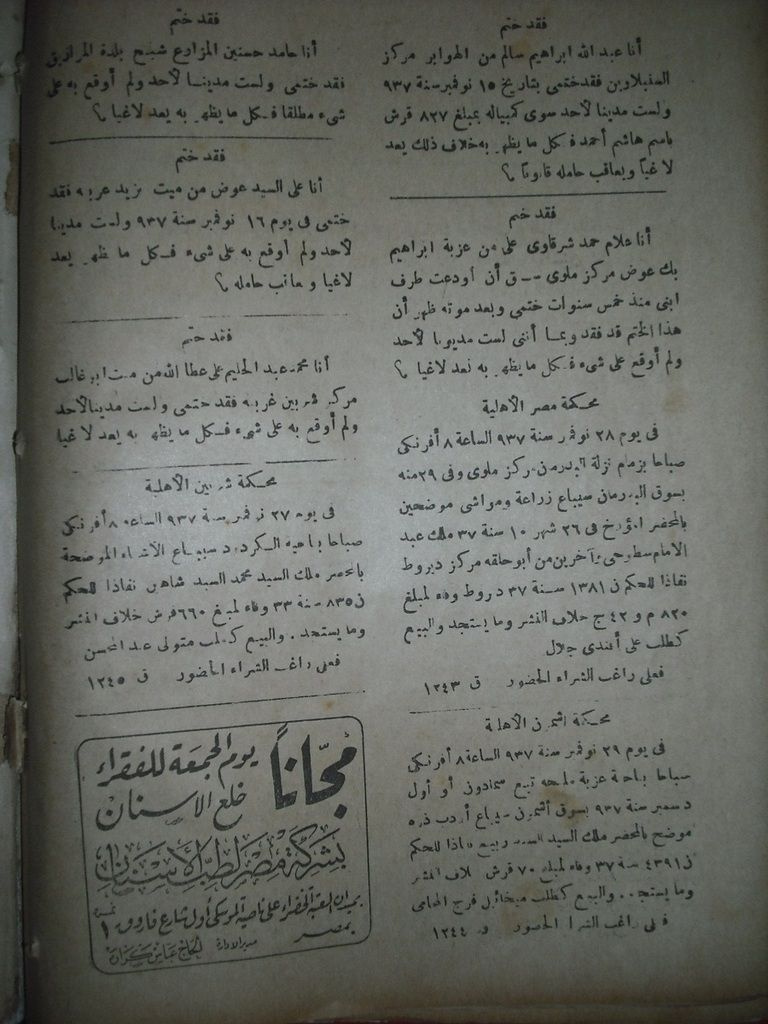 فقد ختم
أنا عبد الله ابراهيم سالم من الهوابر مركز
السنبلاوين فقد ختمى بتاريخ ١٥ نوفمبر سنة ٩٣٧
ولست مدينا لأحد سوى كمبياله بمبلغ ٨٢٧ قرش
باسم هاشم أحمد فكل ما يظهر به خلاف ذلك يعد
لاغياً ويعاقب حامله قانونا ؟
فقد ختم
أنا علام حمد شرقاوى على من عزبة ابراهيم
بك عوض مركز ملوى أن أودعت طرف
ابنى منذ خمس سنوات ختمى وبعد موته ظهر أن
هذا الختم قد فقد وبما أننى لست مديونا لأحد
ولم أوقع على شىء فكل ما يظهر به يعد لاغيا ؟
محكمة مصر الأهلية
فى يوم ٢٨ نوفمبر سنة ٩٣٧ الساعة ٨ أفرنكى
صباحا بزمام نزلة البدرمان مركز ملوى وفى ٢٩ منه
بسوق البدرمان سيباع زراعة ومواشى موضحين
بالمحضر المؤرخ فى ٢٦ شهر ١٠ سنة ٣٧ ملك عبد
الامام سطوحى وآخرين من أبو حلقه مركز ديروط
نفاذا للحكم ن ١٣٨١ سنة ٣٧ ديروط وفاء لمبلغ
٨٢٠ م و ٤٢ ج خلاف النشر وما يستجد والبيع
كطلب على أفندى جلال
فعلى راغب الشراء الحضور ق ١٢٤٣
محكمة اشمون الأهلية
فى يوم ٢٩ نوفمبر سنة ٩٣٧ الساعة ٨ أفرنكى
صباحا بناحية عزبة تبع سمادون أو أول
ديسمبر سنة ٩٣٧ بسوق أشمون سيباع أردب ذره
موضح بالمحضر ملك السيد السيد ربيع نفاذا للحكم
ن ٤٣٩١ سنة ٣٧ وفاء لمبلغ ٧٠ قرش خلاف النشر
وما يستجد . والبيع كطلب ميخائيل فرج المحامى
فعلى راغب الشراء الحضور ق ١٢٤٤
فقد ختم
أنا حامد حسنين المزارع شيخ بلدة المرازيق
فقد ختمى ولست مدينا لأحد ولم أوقع به على
شىء مطلقا فكل ما يظهر به يعد لاغيا ؟
فقد ختم
أنا على السيد عوض من ميت يزيد غربيه فقد
ختمى فى يوم ١٦ نوفمبر سنة ٩٣٧ ولست مدينا
لأحد ولم أوقع به على شىء فكل ما يظهر يعد
لاغيا ويعاقب حامله ؟
فقد ختم
أنا محمد عبد الحليم على عطا الله من ميت ابو غالب
مركز شربين غربيه فقد ختمى ولست مدينا لأحد
ولم أوقع به على شىء فكل ما يظهر به يعد لاغيا
محكمة شربين الأهلية
فى يوم ٢٧ نوفمبر سنة ٩٣٧ الساعة ٨ أفرنكى
صباحا بناحيه سيباع الأشياء الموضحة
بالمحضر ملك السيد محمد السيد شاهين نفاذا للحكم
ن ٨٣٥ سنة ٣٣ وفاء لمبلغ ٦٦٠ قرش خلاف النشر
وما يستجد . والبيع كطلب متولى عبد المحسن
فعلى راغب الشراء الحضور ق ١٢٤٥
مجّاناً يوم الجمعة للفقراء
خلع الاسنان
بشركة مصر لطب الأسنان
بميدان العتبة الخضراء على ناصية الموسكى أول شارع فاروق نمرة ١
بمصر
مدير الادارة الحاج عباس كرارة